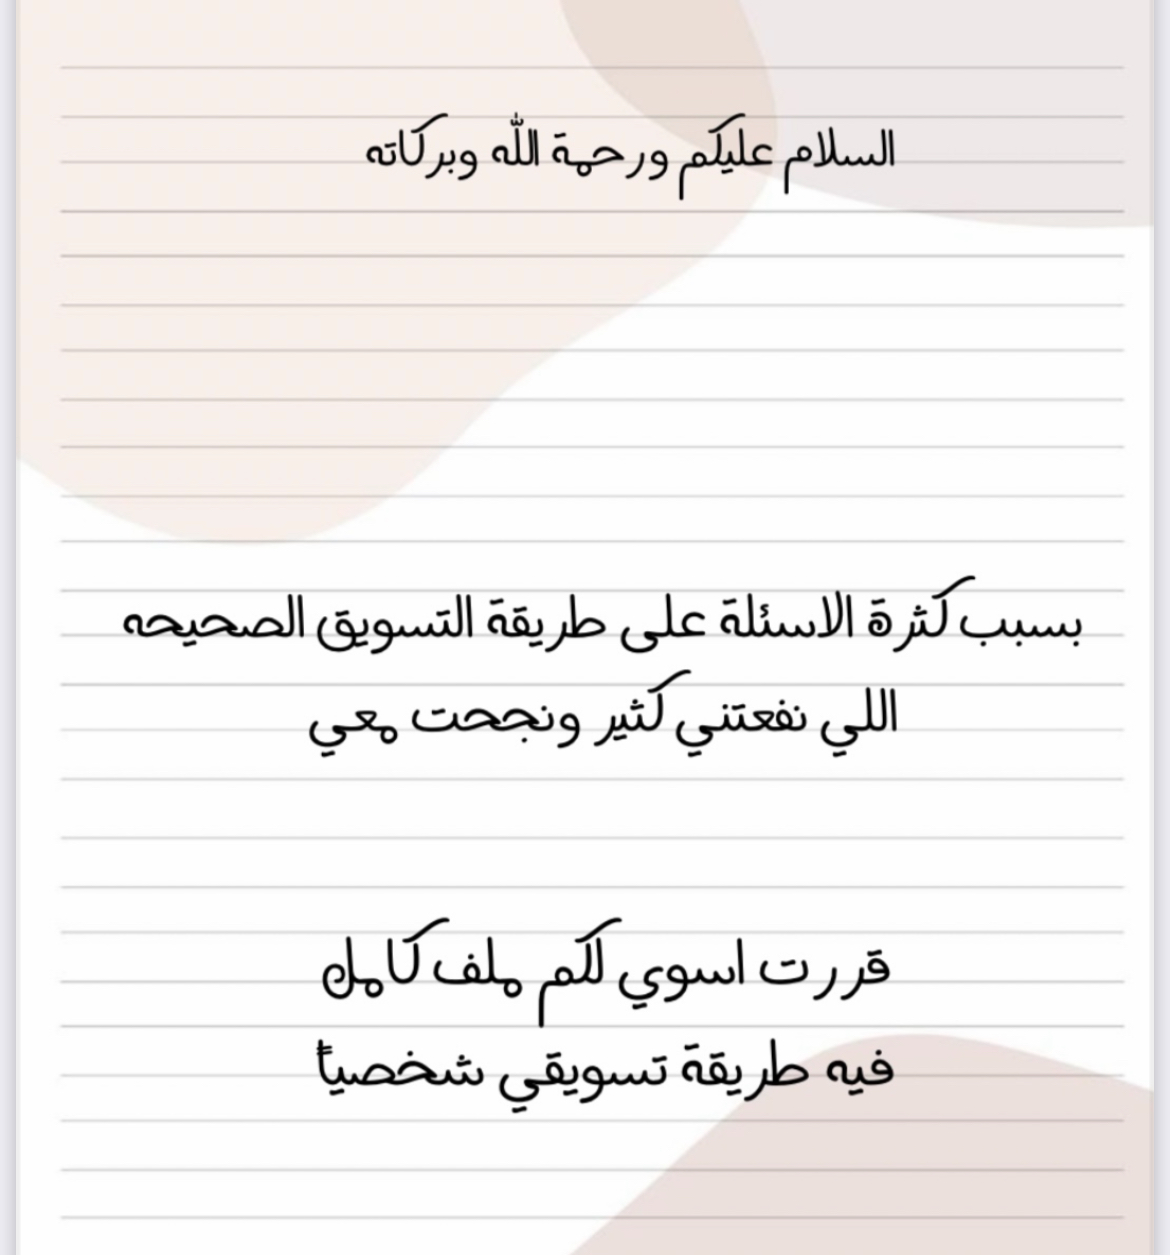 السلام عليكم ورحمة الله وبركاته
بسبب كثرة الاسئلة على طريقة التسويق الصحيحه
اللي نفعتني كثير ونجحت معي
قررت اسوي لكم ملف كامل
فيه طريقة تسويقي شخصياً